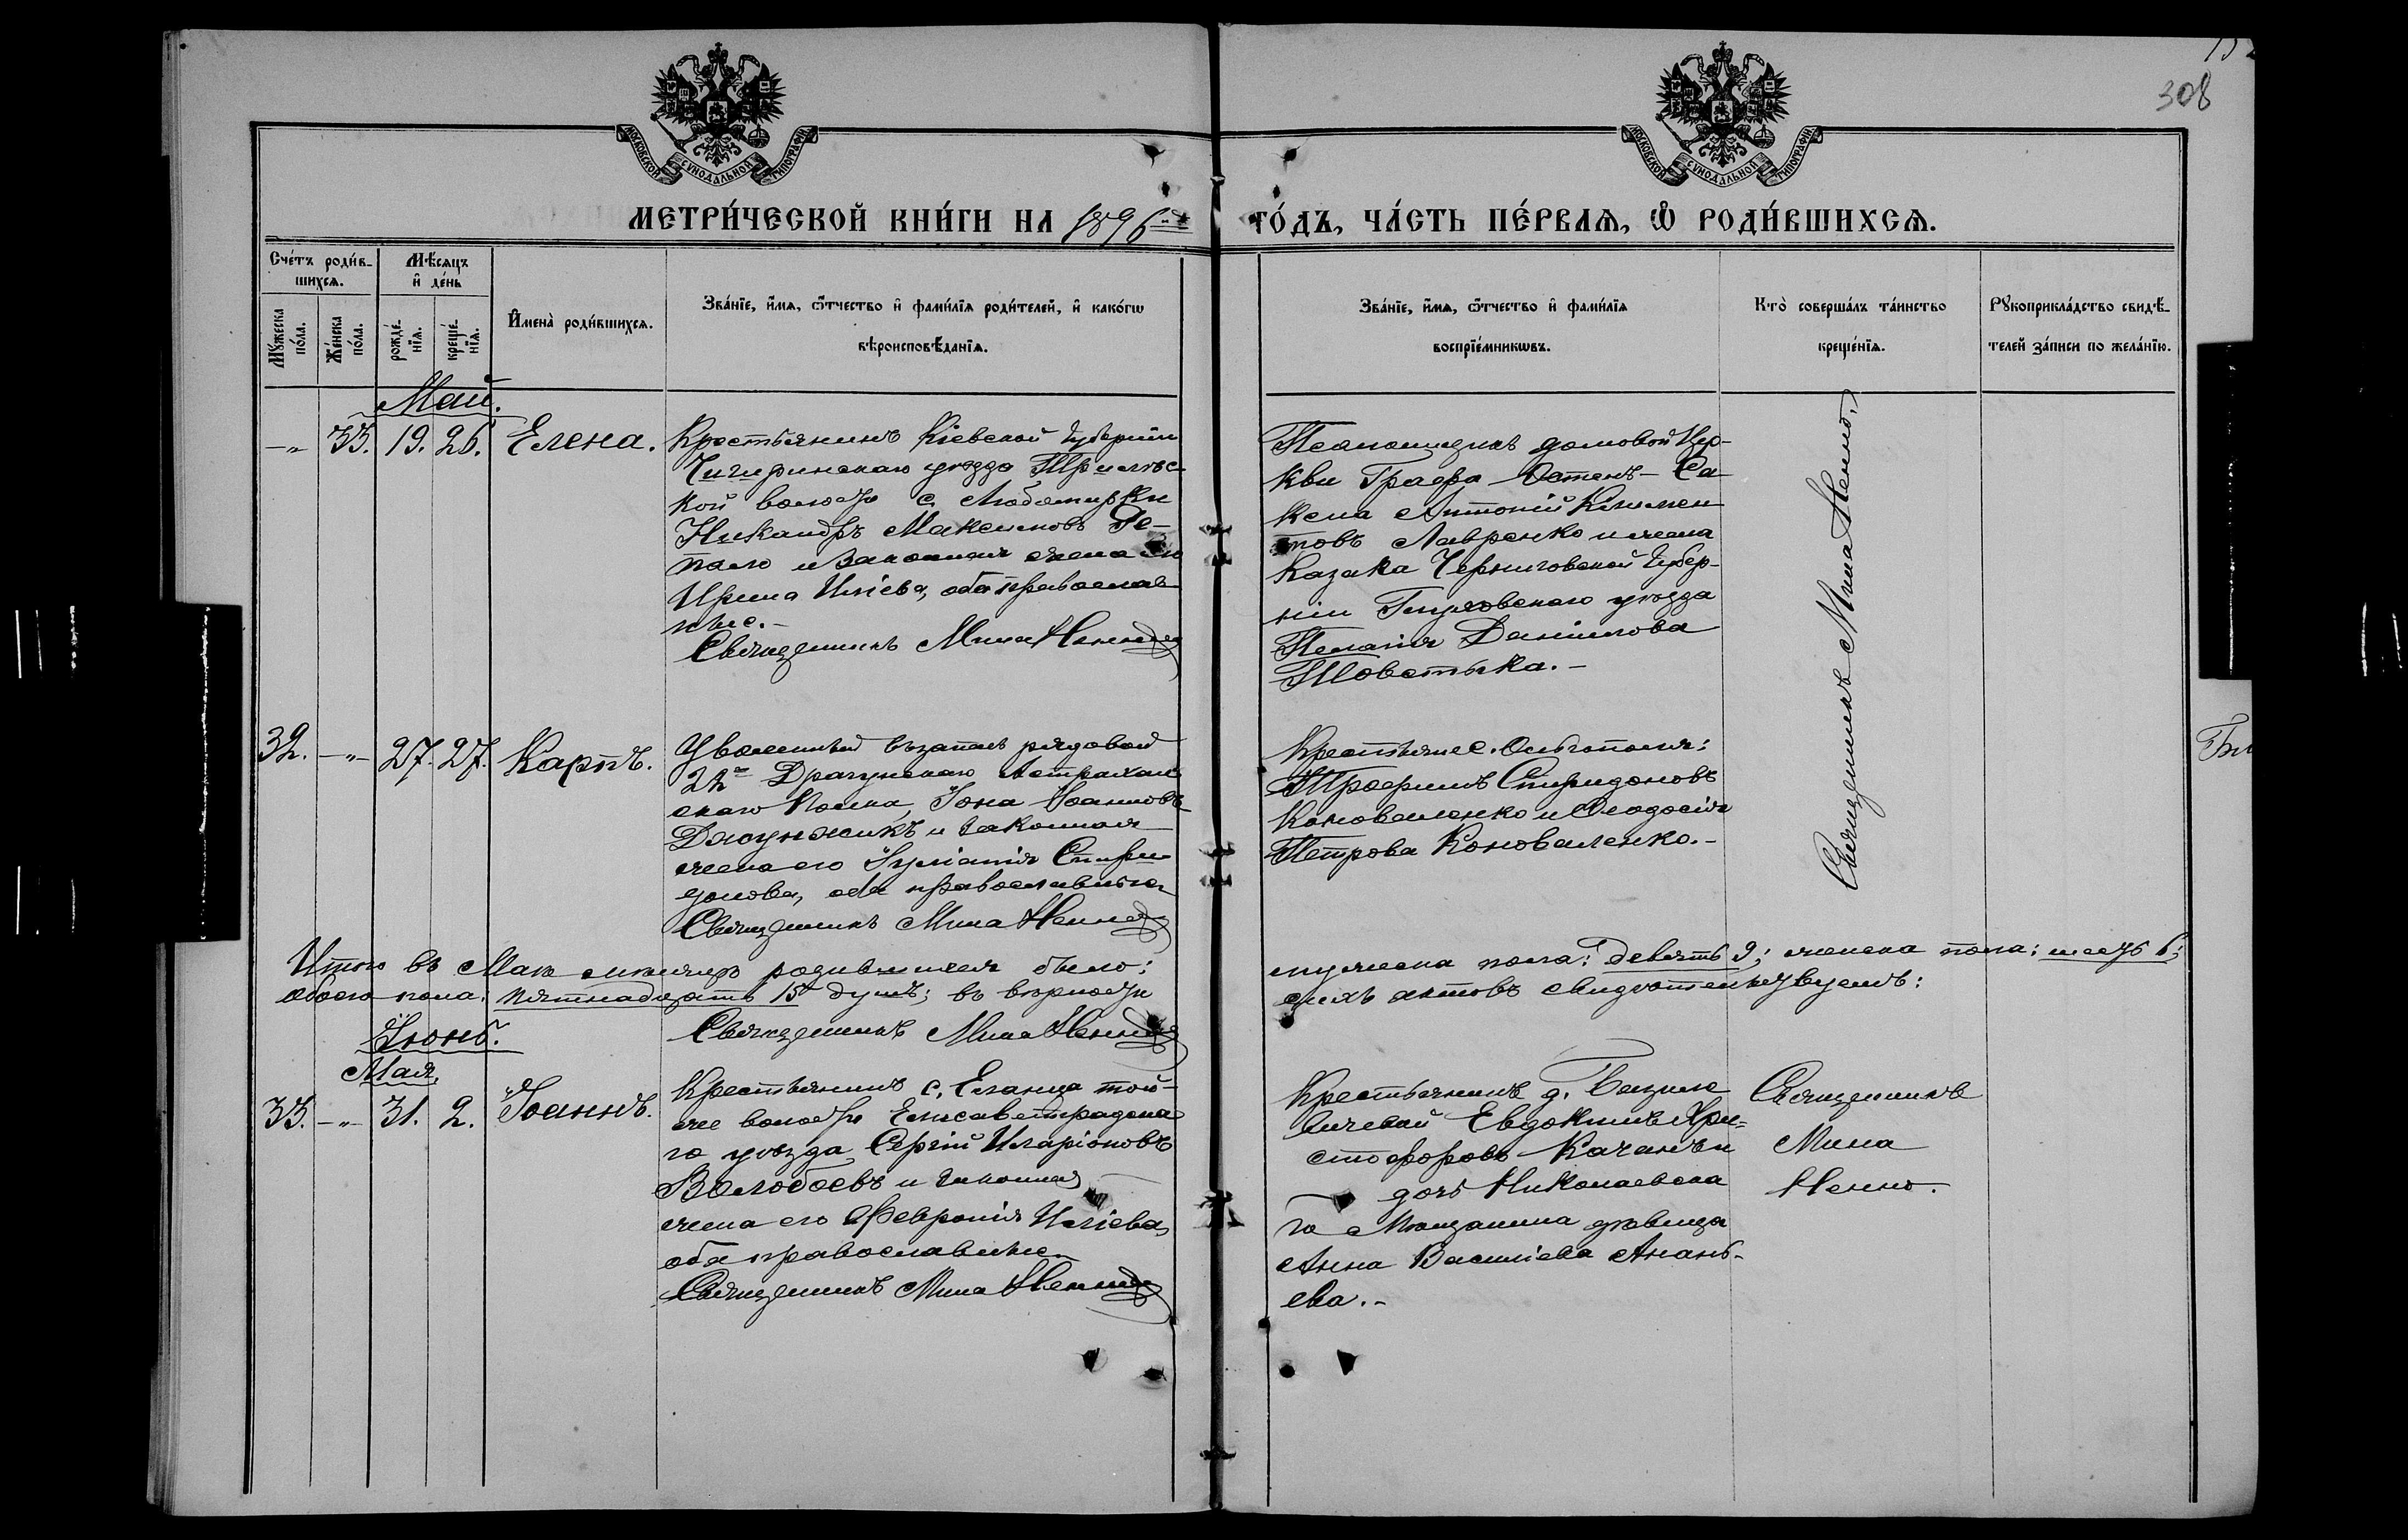 152
308
МОСКОВСКОЙ СѴНОДАЛЬНОЙ ТИПОГРАФІИ
МОСКОВСКОЙ СѴНОДАЛЬНОЙ ТИПОГРАФІИ
МЕТРИ́ЧЕСКОЙ КНИ́ГИ НА 1896й ГО́ДЪ, ЧА́СТЬ ПЕ́РВАѦ, Ѡ҆ РОДИ́ВШИХСѦ.
Сче́тъ роди́в-
шихсѧ.
Мѣ́сѧцъ
и҆ де́нь
Му́жеска
по́ла.
Же́нска
по́ла.
рожде́-
нїѧ.
креще́-
нїѧ.
И҆мена̀ роди́вшихсѧ.
Зва́нїе, и҆́мѧ, ѻ҆́тчество и҆ фами́лїѧ роди́телей, и҆ како́гѡ
вѣроисповѣ́данїѧ.
Зва́нїе, и҆́мѧ, ѻ҆́тчество и҆ фами́лїѧ
воспрїе́мникѡвъ.
Кто̀ соверша́лъ та́инство
креще́нїѧ.
Рꙋкоприкла́дство свидѣ́-
телей за́писи по жела́нїю.
Май.
-„- 33. 19. 26. Елена.
Крестьянинъ Кіевской Губерніи
Чигиринскаго уѣзда Трилѣс-
кой волости с. Любомирки
Никандръ Максимовъ Ге-
пало и законная жена его
Ирина Иліева, оба православ-
ные.-
Священникъ Мина Ненно
Псаломщикъ домовой Цер-
кви Графа Остенъ-Са-
кена Антоній Климен
товъ Лавренко и жена
Казака Черниговской Губер-
ніи уѣзда
Пелагія Даніилова
Товстыка.-
Священникъ Мина Ненно.
32. -„- 27. 27. Карпъ.
Уволенный въ запасъ рядовой
22го Драгунскаго Астрахан
скаго Полка, Іона Іоанновъ
и законная
жена его Іуліанія Спири
донова, оба православные
Священникъ Мина Ненно
Крестьяне с. Ольгополя:
Трофимъ Спиридоновъ
Коноваленко и Ѳеодосія
Петрова Коноваленко.-
Итого въ Маѣ мѣсяцѣ родившихся было: мужеска пола: девять 9; женска пола: шесть 6;
обоего пола: пятнадцать 15 душъ; въ вѣрности сихъ актовъ свидѣтельствуемъ:
Священникъ Мина Ненно
Іюнь.
Мая.
33. -„- 31. 2. Іоаннъ.
Крестьянинъ с. Еланца той-
же волости Елисаветградска
го уѣзда Сергій Иларіоновъ
и законная
жена его Февронія Иліева,
оба православные.
Священникъ Мина Ненно
Крестьянинъ д.
Евдокимъ Хри=
стофоровъ Качанъ и
дочь Николаевска
го Мѣщанина дѣвица
Анна Василіева Анань-
ева.-
Священникъ
Мина
Ненно.